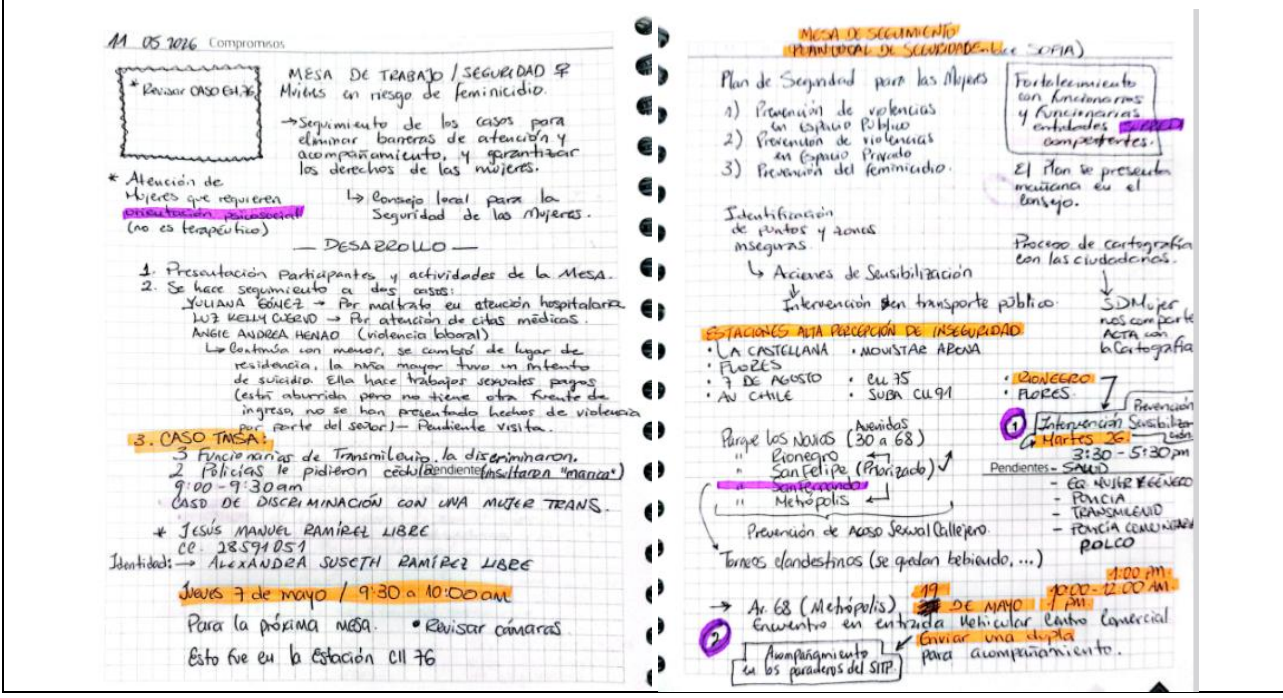 11 05 2026 Compromisos
* Revisar CASO Est. 76
MESA DE TRABAJO / SEGURIDAD ♀
Mujeres en riesgo de feminicidio.
→ Seguimiento de los casos para
eliminar barreras de atención y
acompañamiento, y garantizar
los derechos de las mujeres.
* Atención de
Mujeres que requieren
orientación psicosocial
(no es terapéutico)
↳ Consejo local para la
Seguridad de las Mujeres.
— DESARROLLO —
1. Presentación Participantes y actividades de la MESA.
2. Se hace seguimiento a dos casos:
YULIANA GÓMEZ → Por maltrato en atención hospitalaria
LUZ KELLY CUERVO → Por atención de citas médicas.
ANGIE ANDREA HENAO (violencia laboral)
↳ Continúa con menor, se cambió de lugar de
residencia, la niña mayor tuvo un intento
de suicidio. Ella hace trabajos sexuales pagos
(está aburrida pero no tiene otra fuente de
ingreso, no se han presentado hechos de violencia
por parte del señor) — Pendiente visita.
3. CASO TMSA:
3 Funcionarias de Transmilenio la discriminaron.
2 Policías le pidieron cédula Pendiente (insultaron "marica")
9:00 - 9:30 am
CASO DE DISCRIMINACIÓN CON UNA MUJER TRANS.
* JESÚS MANUEL RAMÍREZ LIBRE
CC. 28591051
Identidad: → ALEXANDRA SUSETH RAMÍREZ LIBRE
Jueves 7 de mayo / 9:30 a 10:00 am
Para la próxima mesa. • Revisar cámaras
Esto fue en la Estación Cll 76
MESA DE SEGUIMIENTO
PLAN LOCAL DE SEGURIDAD SOFIA)
Plan de Seguridad para las Mujeres
1) Prevención de violencias
en espacio Público
2) Prevención de violencias
en Espacio Privado
3) Prevención del feminicidio.
Fortalecimiento
con funcionarios
y funcionarias
entidades
competentes.
El Plan se presenta
mañana en el
Consejo.
Identificación
de puntos y zonas
inseguras.
↳ Acciones de Sensibilización
↓
Intervención en transporte público.
Proceso de cartografía
con las ciudadanas.
↓
SDMujer
nos comparte
ACTA con
la Cartografía
ESTACIONES ALTA PERCEPCIÓN DE INSEGURIDAD
• LA CASTELLANA • MOVISTAR ARENA
• FLORES
• 7 DE AGOSTO • CLL 75
• AV CHILE • SUBA CLL 91
• RIONEGRO
• FLORES.
Prevención
① Intervención Sensibilización
Martes 26.
3:30 - 5:30 pm
Pendientes - SALUD
- EQ. MUJER Y GÉNERO
- POLICIA
- TRANSMILENIO
- POLICÍA COMUNITARIA
POLCO
Avenidas
Parque los Novios (30 a 68)
" Rionegro
" San Felipe (Priorizado)
" San Fernando
" Metrópolis
Prevención de Acoso Sexual Callejero.
Torneos clandestinos (se quedan bebiendo, ...)
→ Av. 68 (Metrópolis) 19 DE MAYO 1:00 pm. 10:00 - 12:00 AM. 1 PM.
Encuentro en entrada Vehicular Centro Comercial
② Enviar una dupla
para acompañamiento.
Acompañamiento
en los paraderos del SITP